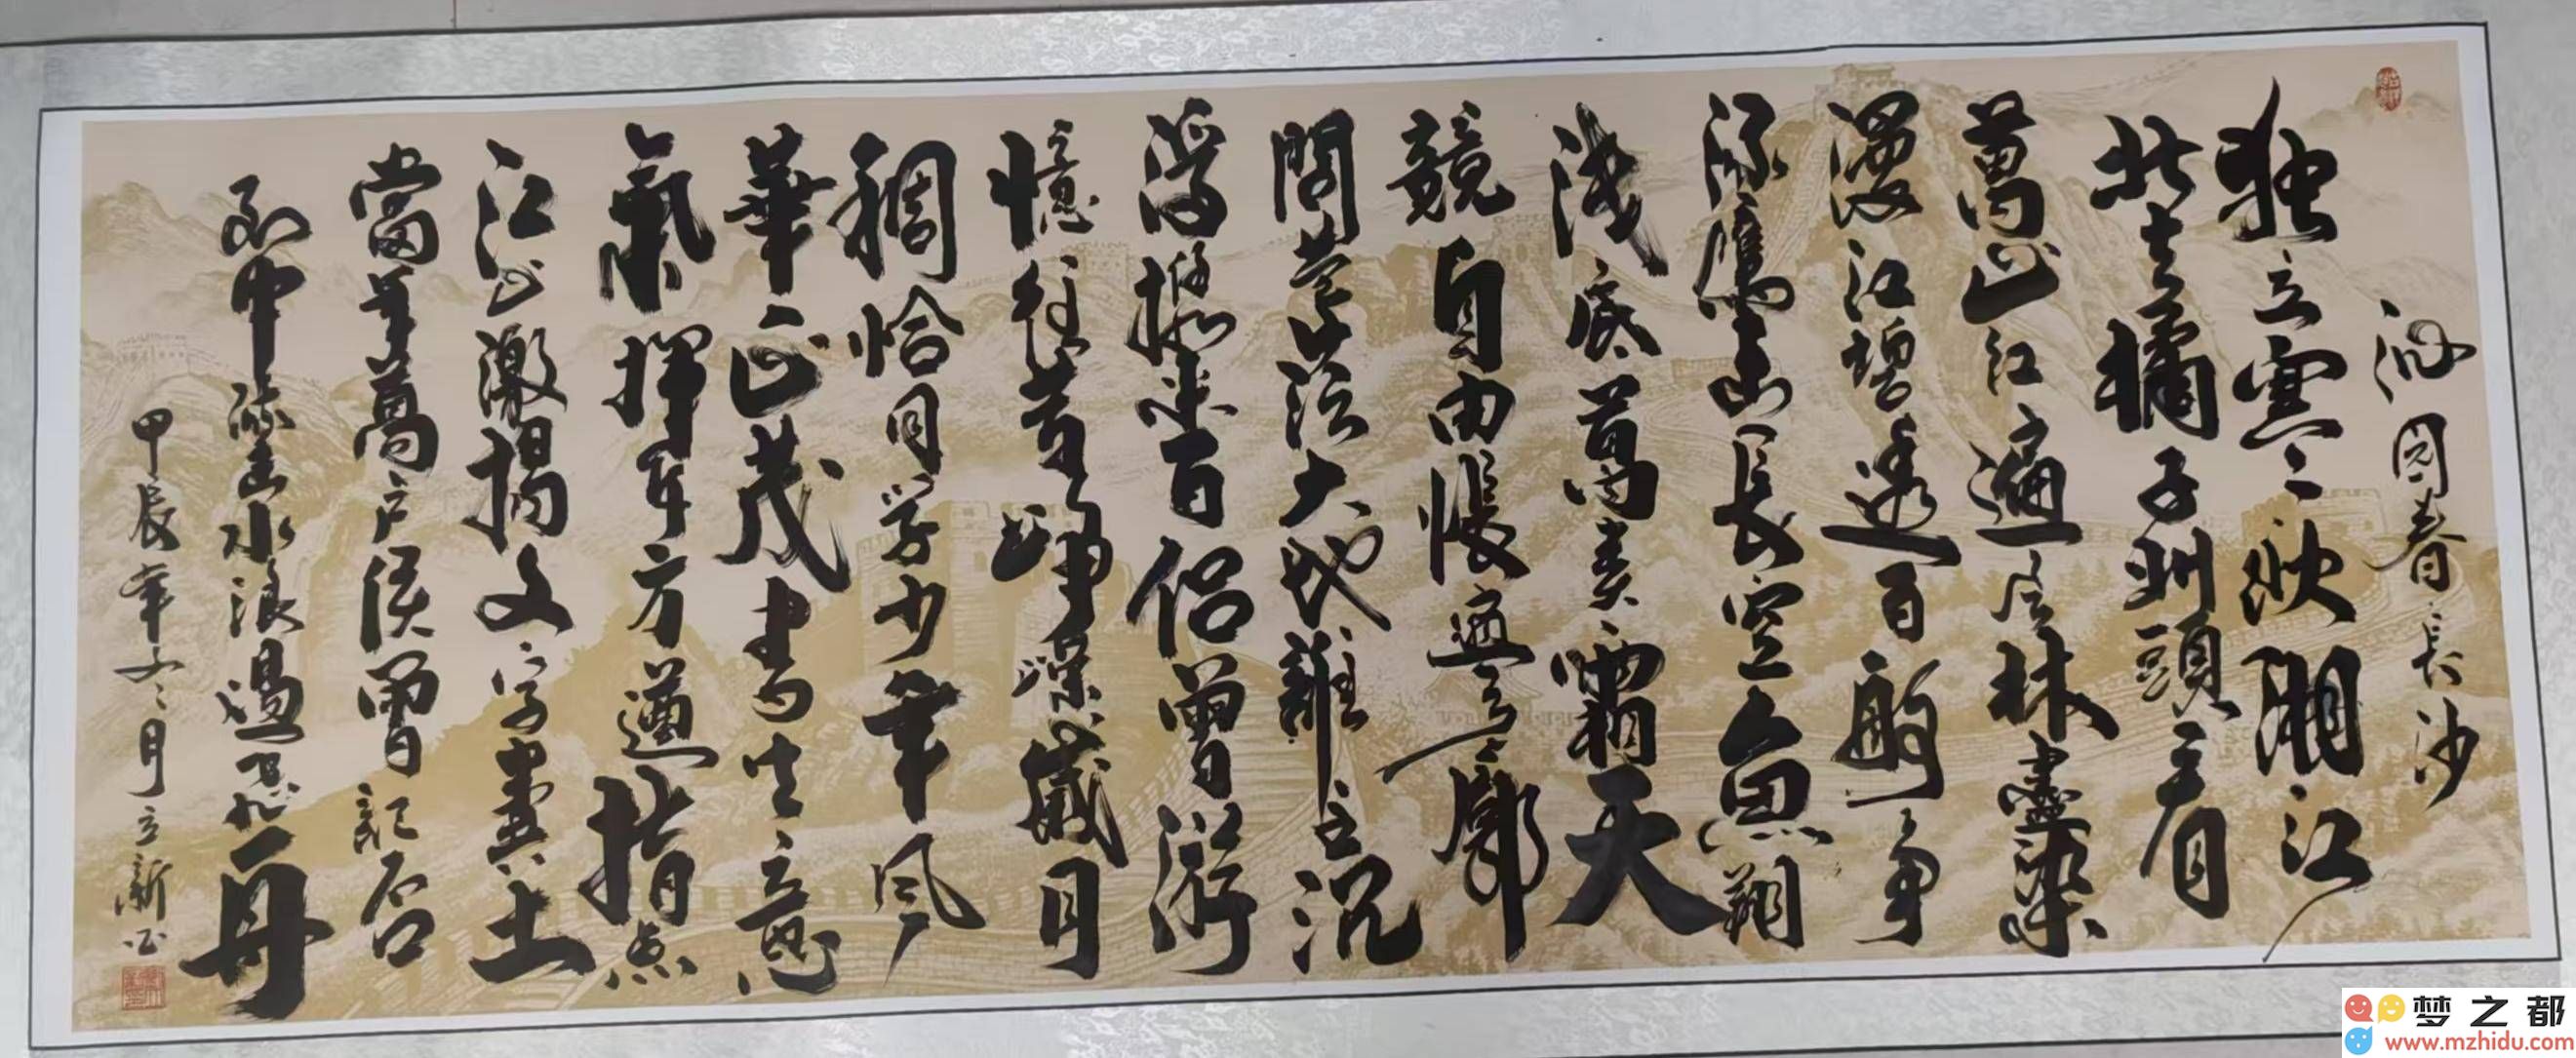 沁园春长沙
独立寒秋湘江
北去橘子洲頭看
萬山红遍层林盡染
漫江碧透百舸争
流鹰击長空鱼翔
浅底萬类霜天
競自由怅寥廓
問苍茫大地誰主沉
浮携来百侣曾游
憶往昔峥嵘歲月
稠恰同学少年风
華正茂书生意
氣挥斥方遒指点
江山激揚文字粪土
當年萬户侯曾記否
到中流击水浪遏飞舟
甲辰年月立新书
梦之都
www.mzhidu.com